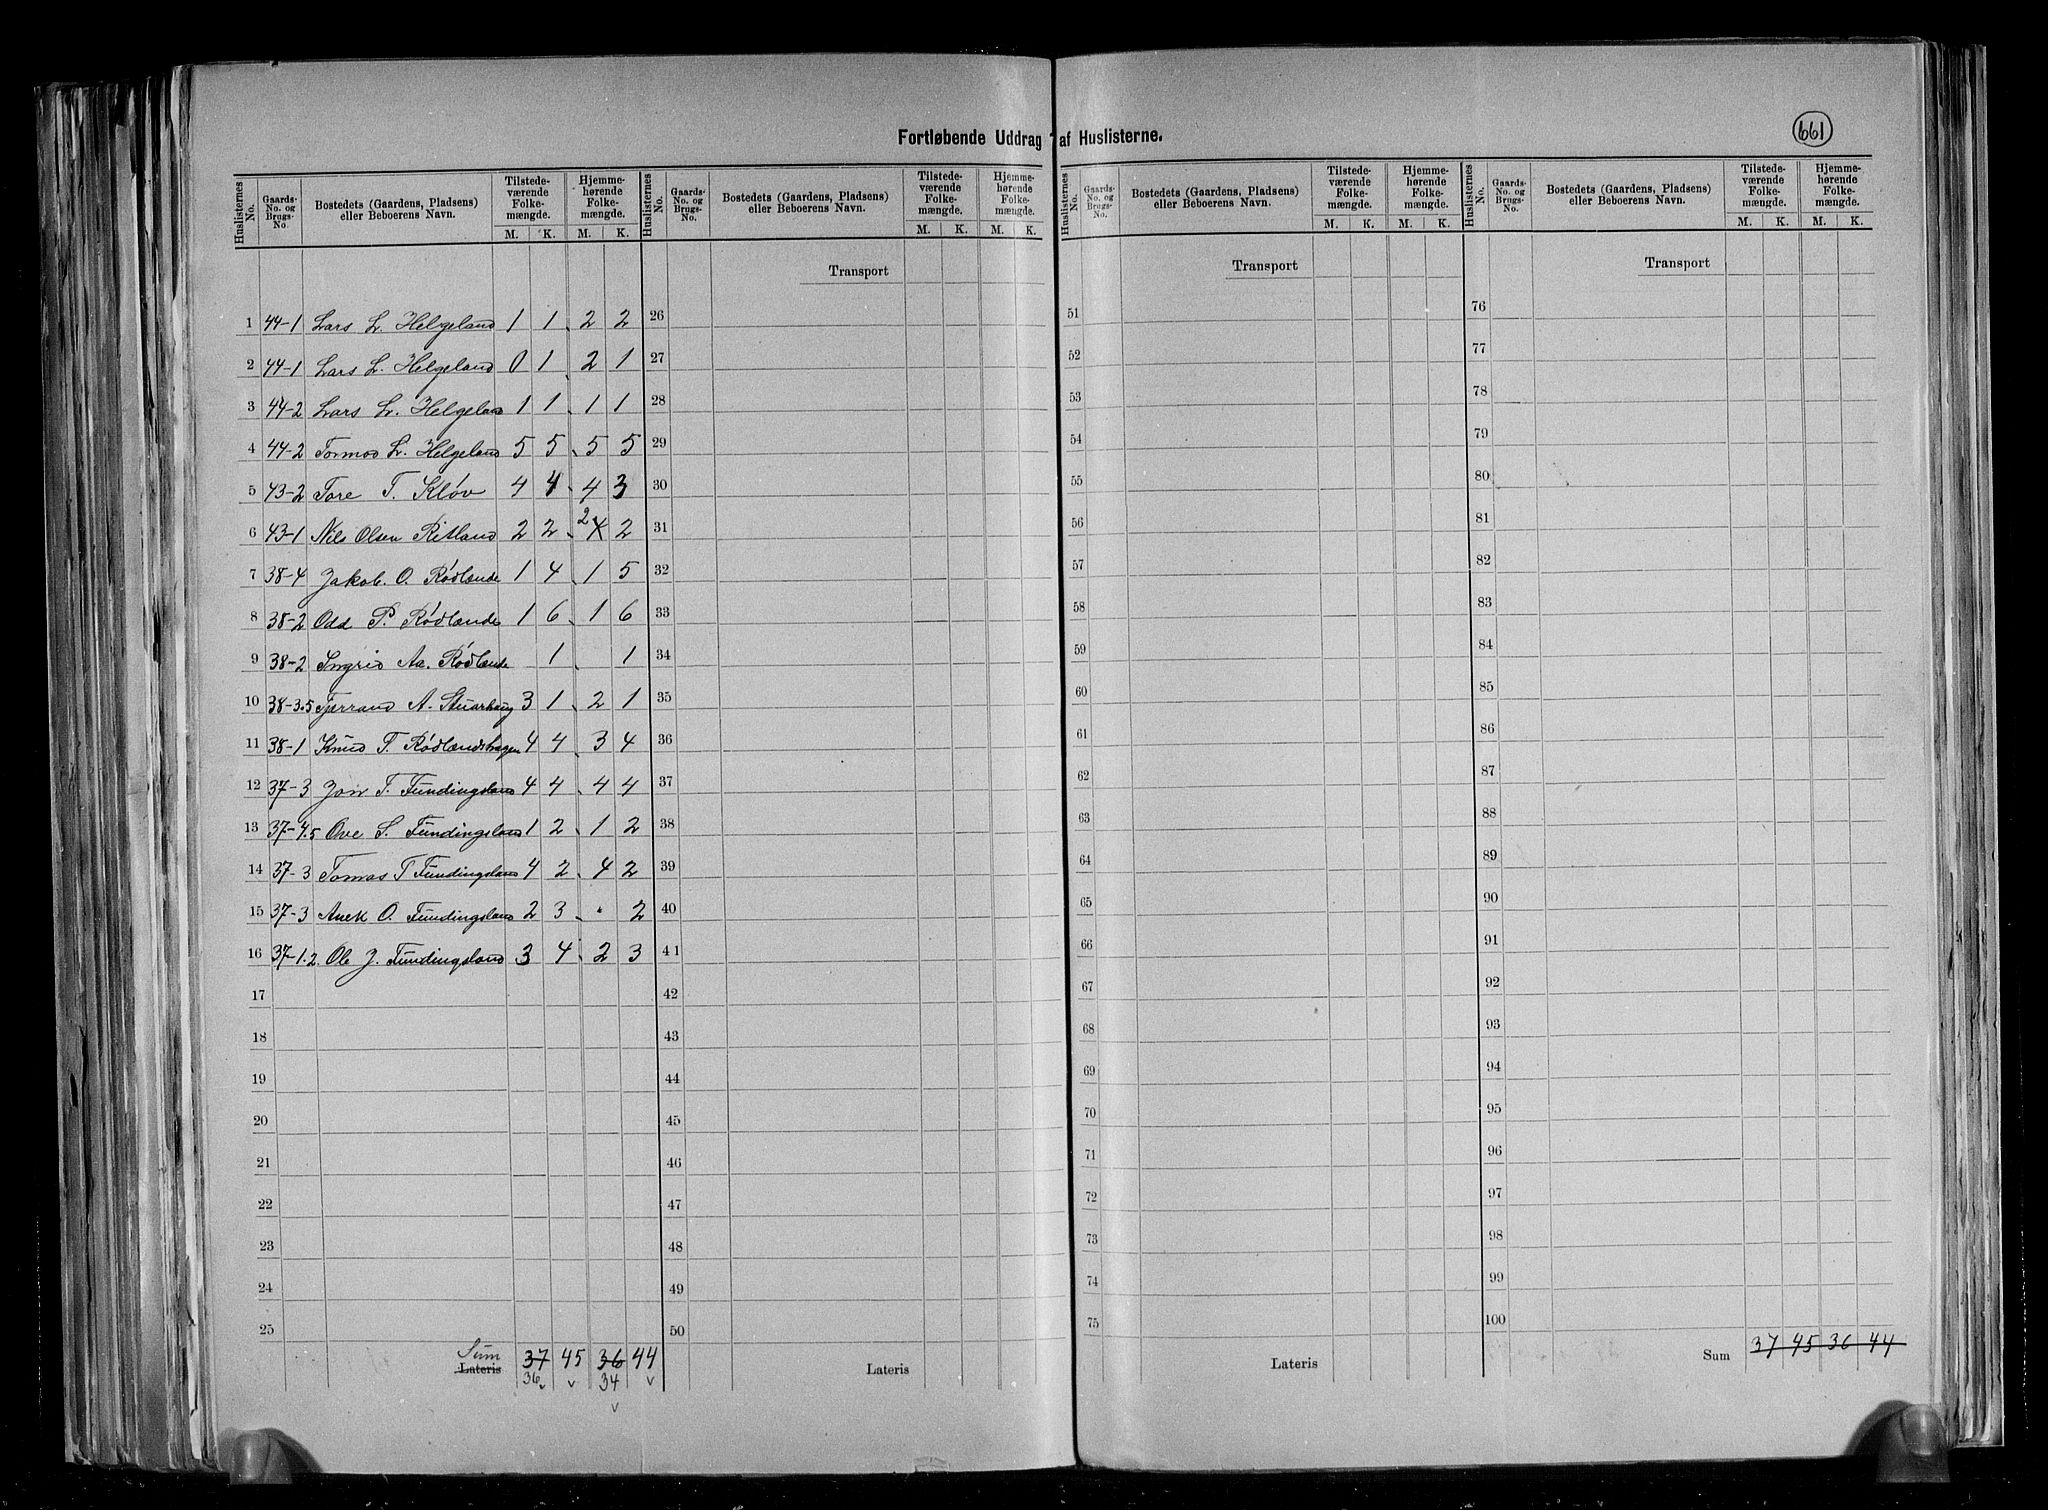 661
Fortløbende Uddrag af Huslisterne.
Huslisternes No. | Gaards-No. og Brugs-No. | Bostedets (Gaardens, Pladsens) eller Beboerens Navn. | Tilstedeværende Folkemængde. M. K. | Hjemmehørende Folkemængde. M. K.
Huslisternes No. | Gaards-No. og Brugs-No. | Bostedets (Gaardens, Pladsens) eller Beboerens Navn. | Tilstedeværende Folkemængde. M. K. | Hjemmehørende Folkemængde. M. K.
Huslisternes No. | Gaards-No. og Brugs-No. | Bostedets (Gaardens, Pladsens) eller Beboerens Navn. | Tilstedeværende Folkemængde. M. K. | Hjemmehørende Folkemængde. M. K.
Huslisternes No. | Gaards-No. og Brugs-No. | Bostedets (Gaardens, Pladsens) eller Beboerens Navn. | Tilstedeværende Folkemængde. M. K. | Hjemmehørende Folkemængde. M. K.
Transport Transport Transport
1 44-1 Lars L. Helgeland 1 1 2 2 26 51 76
2 44-1 Lars L. Helgeland 0 1 2 1 27 52 77
3 44-2 Lars L. Helgeland 1 1 1 1 28 53 78
4 44-2 Tormod L. Helgeland 5 5 5 5 29 54 79
5 43-2 Tore T. Kløv 4 4 4 3 30 55 80
6 43-1 Nils Olsen Ritland 2 2 2 4 2 31 56 81
7 38-4 Jakob. O. Rødlende 1 4 1 5 32 57 82
8 38-2 Odd P. Rødlende 1 6 1 6 33 58 83
9 38-2 Ingrid Aa. Rødlende 1 1 34 59 84
10 38-3.5 Tjerrand A. Stuarhaug 3 1 2 1 35 60 85
11 38-1 Knud T. Rødlendshagen 4 4 3 4 36 61 86
12 37-3 Jon T. Fundingsland 4 4 4 4 37 62 87
13 37-4.5 Ove S. Fundingsland 1 2 1 2 38 63 88
14 37-3 Tomas T Fundingsland 4 2 4 2 39 64 89
15 37-3 Anek O. Fundingsland 2 3 " 2 40 65 90
16 37-1.2. Ole J. Fundingsland 3 4 2 3 41 66 91
17 42 67 92
18 43 68 93
19 44 69 94
20 45 70 95
21 46 71 96
22 47 72 97
23 48 73 98
24 49 74 99
25 50 75 100
Sum
Lateris 37 45 36 44 Lateris Lateris Sum 37 45 36 44
36 34